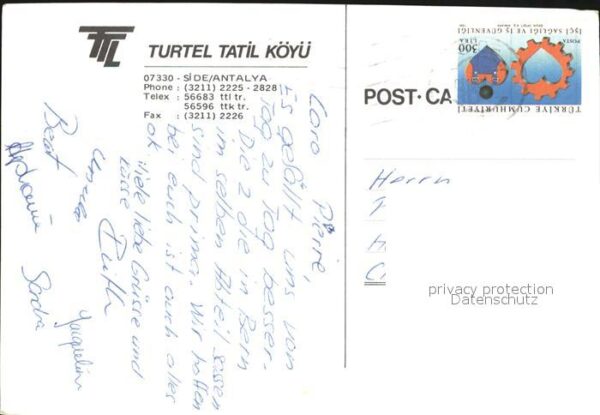 TTL
TURTEL TATİL KÖYÜ
07330 - SİDE/ANTALYA
Phone : (3211) 2225 - 2828
Telex : 56683 ttl tr.
56596 ttk tr.
Fax : (3211) 2226
POST·CA
300
LİRA
POSTA
İŞÇİ SAĞLIĞI VE İŞ GÜVENLİĞİ
TÜRKİYE CUMHURİYETİ
Caro Pierre,
Es gefällt uns von
Tag zu Tag besser.
Die 2 die in Bern
im selben Abteil sassen
sind prima. Wir hoffen
bei euch ist auch alles
ok
Viele liebe Grüsse und
Küsse
Ruth
Beat
Sandra
Jacqueline
Herrn
privacy protection
Datenschutz